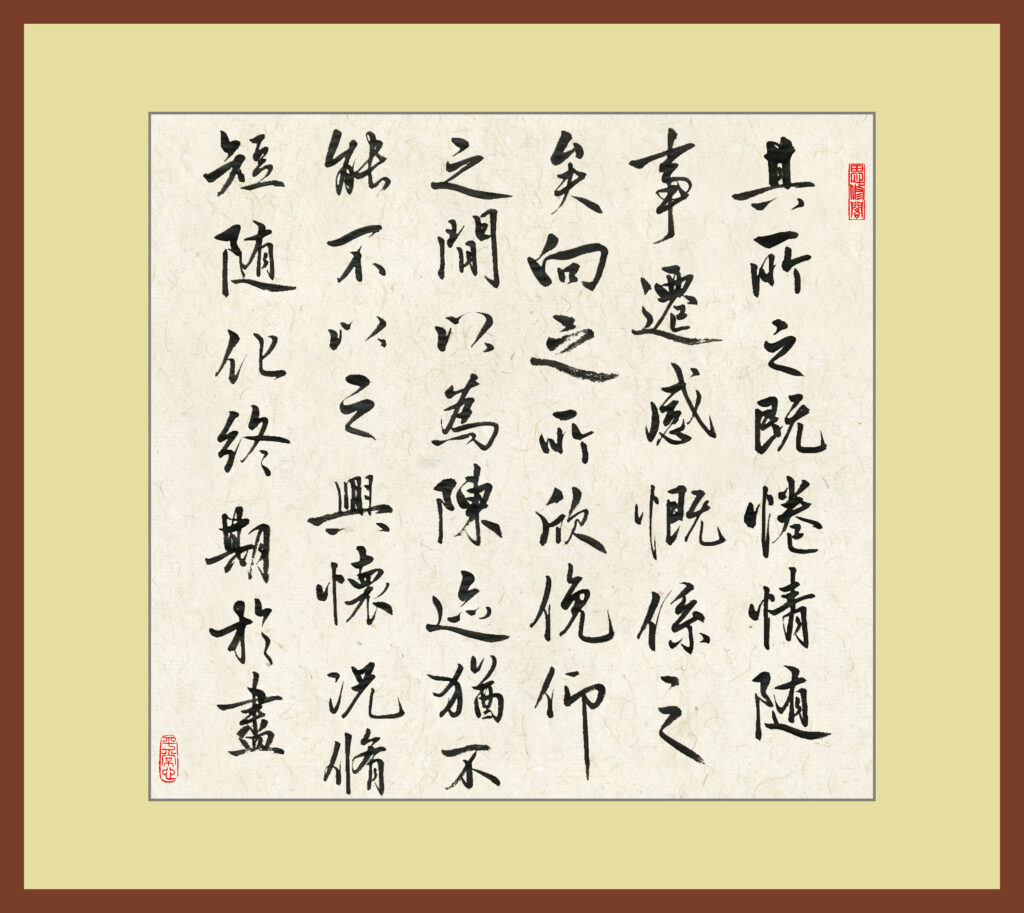 其所之既惓情随
事遷感慨係之
矣向之所欣俛仰
之間以為陳迹猶不
能不以之興懷況脩
短随化終期於盡